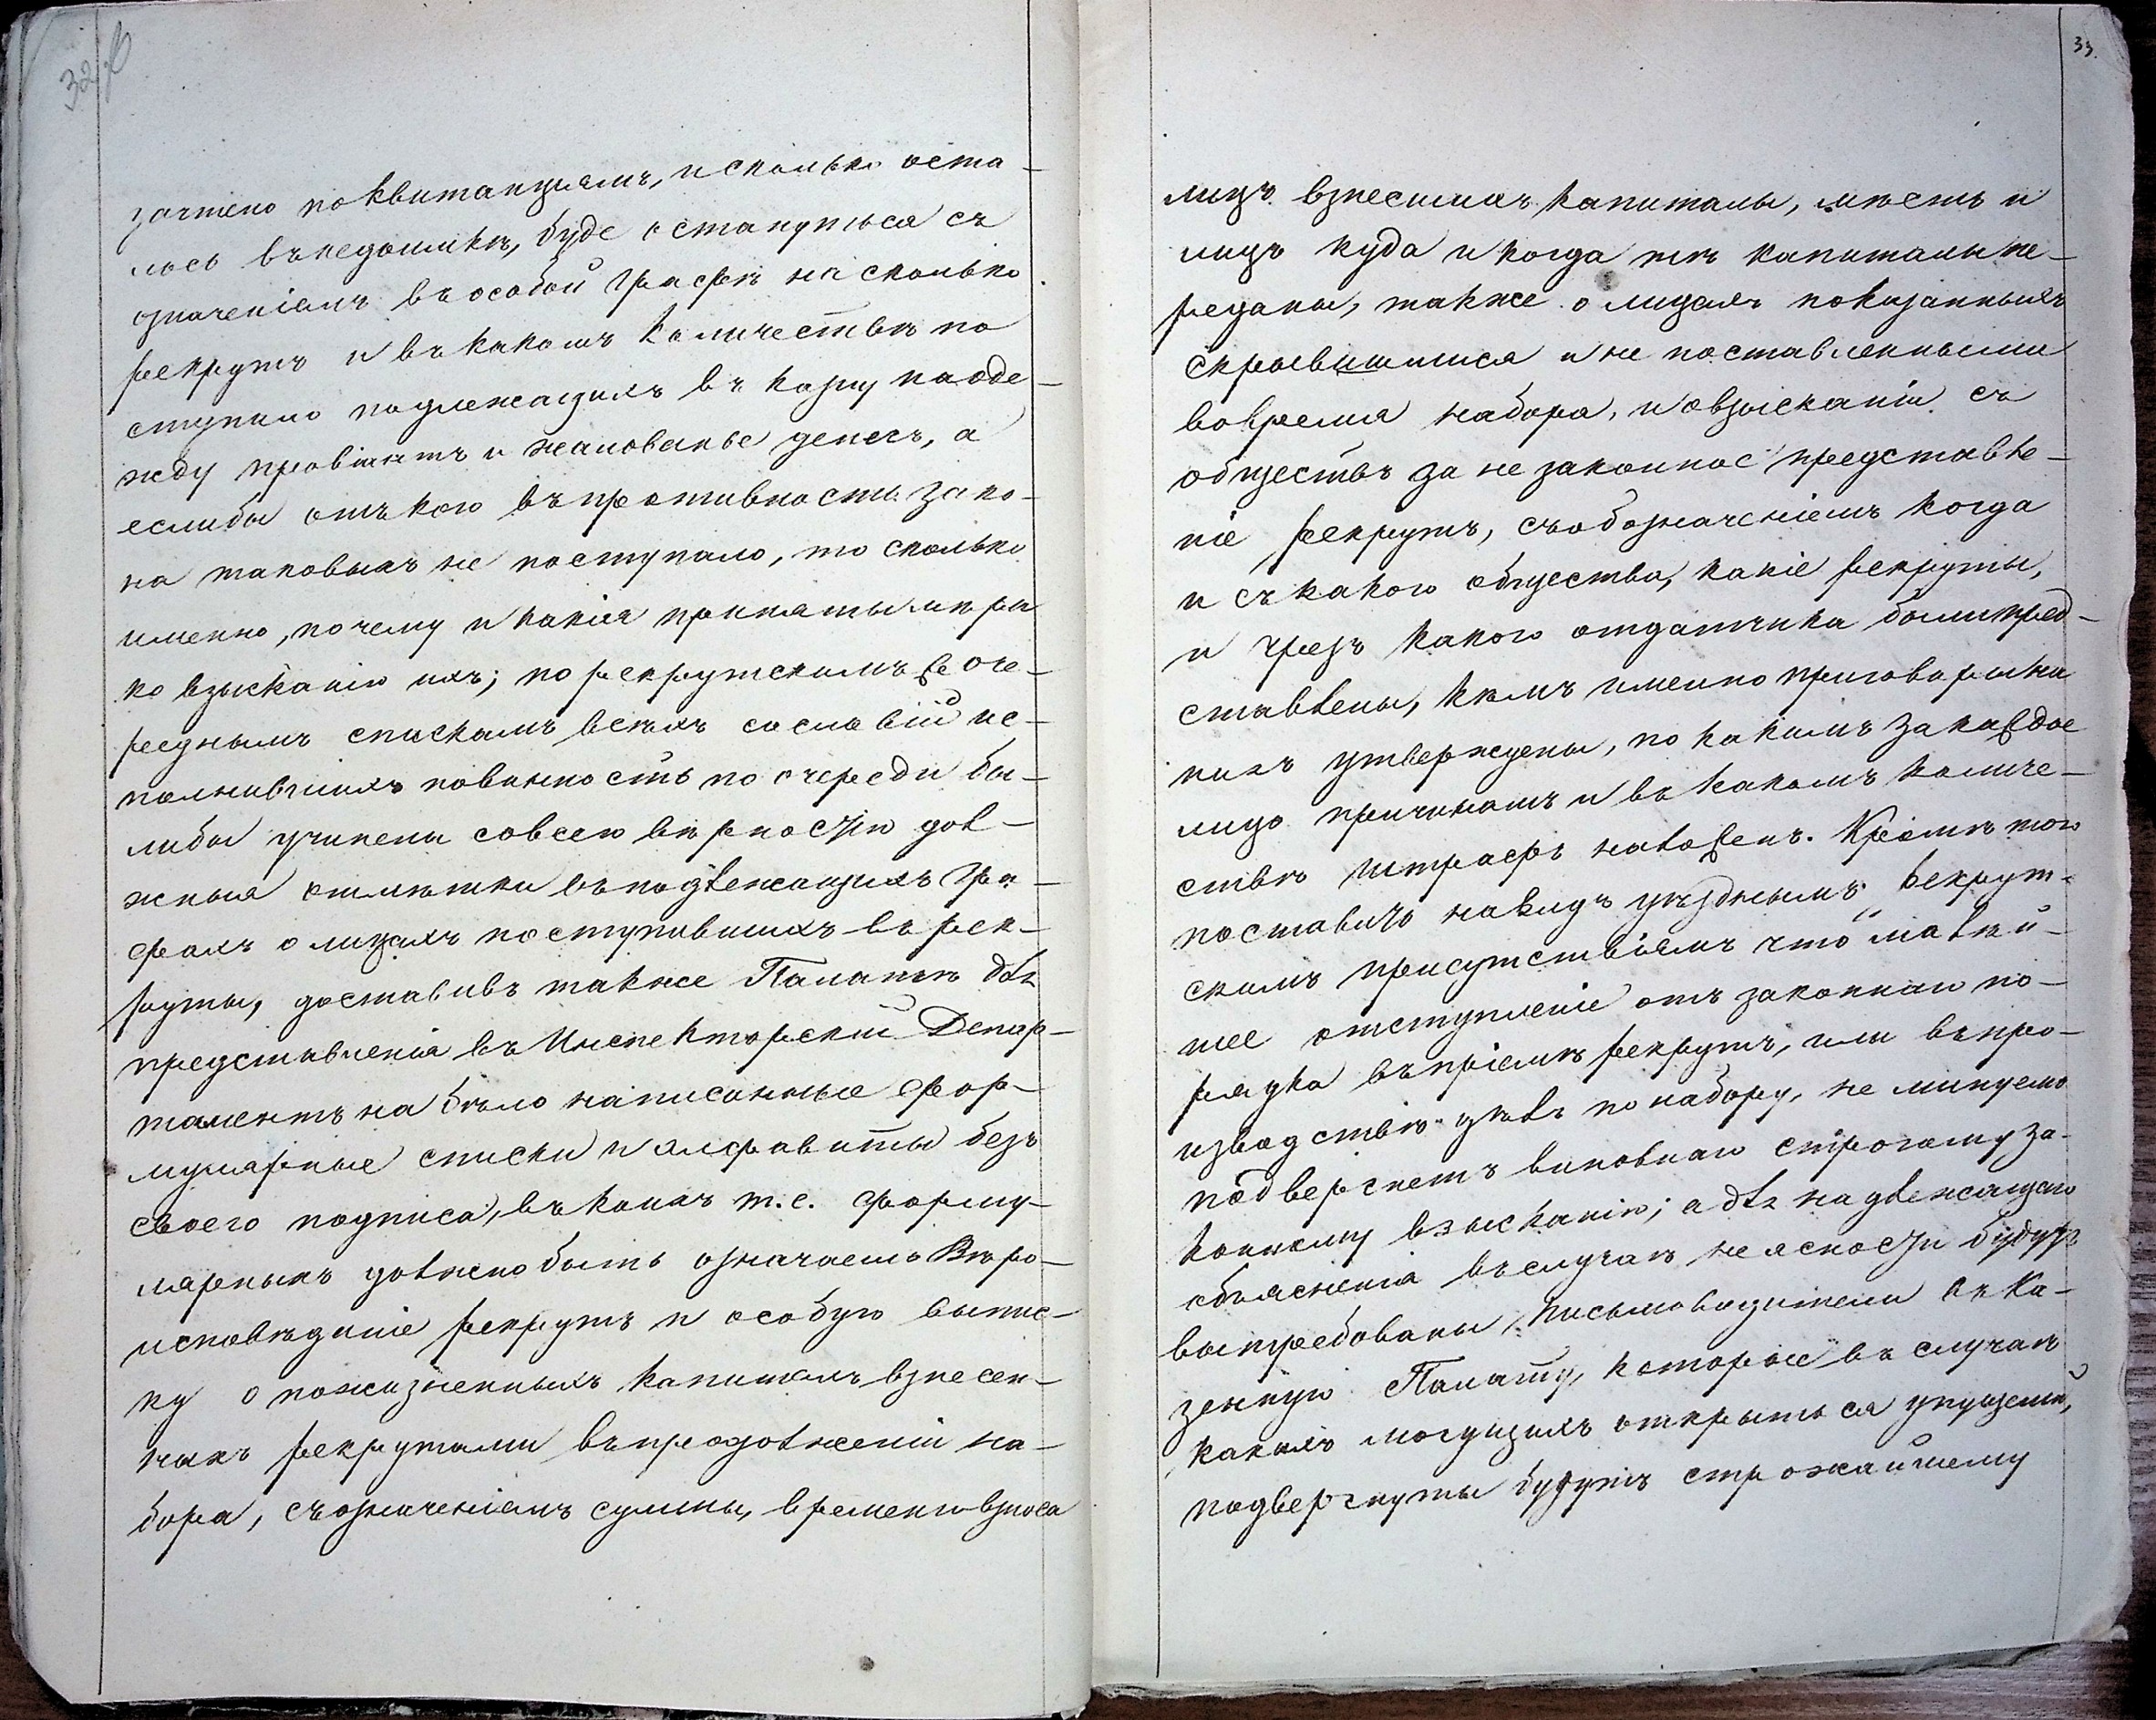 32 об
зачтено по квитанціямъ, и сколько оста-
лось въ недоимкѣ, буде останутся съ
означеніемъ въ особой графѣ на сколько
рекрутъ и въ какомъ количествѣ по
ступило подлежащихъ въ казну на оде-
жду провіантъ и жалованье денегъ, а
еслибы отъ кого въ противность зако-
на таковыхъ не поступало, то сколько
именно, почему и какія приняты мѣры
ко взысканію ихъ; по рекрутскимъ же оче-
реднымъ спискамъ всѣхъ сословій ис-
полнившихъ повинность по очереди бы-
либы учинены со всею вѣрностію дол-
жныя отмѣтки въ подлежащихъ гра-
фахъ о лицахъ поступившихъ въ рек-
руты, доставивъ также Палатѣ для
представленія въ Инспекторскій Депар-
таментъ на бѣло написанные фор-
мулярные списки и алфавиты безъ
своего подписа, въ коихъ т. е. форму-
лярныхъ должно быть означаемо Вѣро-
исповѣданіе рекрутъ и особую выпис-
ку о пожизненныхъ капиталъ взнесен-
ныхъ рекрутами въ продолженіи на-
бора, съ означеніемъ суммы, времени взноса
33.
лицъ взнесшихъ капиталы, мѣстъ и
лицъ куда и когда тѣ капиталы пе-
реданы, также о лицахъ показанныхъ
скрывшимися и не поставленными
во время набора, и о взысканіи съ
обществъ за не законное представле-
ніе рекрутъ, съ обозначеніемъ когда
и съ какого общества, какіе рекруты,
и чрезъ какого отдатчика были пред-
ставлены, кѣмъ именно приговоры на
нихъ утверждены, по какимъ за каждое
лицо причинамъ и въ какомъ количе-
ствѣ штрафъ наложенъ. Кромѣ того
поставить на видъ уѣзднымъ Рекрут-
скимъ присутствіямъ что малѣй-
шее отступленіе отъ законнаго по-
рядка въ пріемѣ рекрутъ, или въ про-
изводствѣ дѣлъ по набору, не минуемо
подвергнетъ виновнаго строгому за-
конному взысканію; а для надлежащаго
объясненія въ случаѣ неясности будутъ
вытребованы Письмоводители въ Ка-
зенную Палату, которые въ случаѣ
какихъ могущихъ открыться упущеній,
подвергнуты будутъ строжайшему